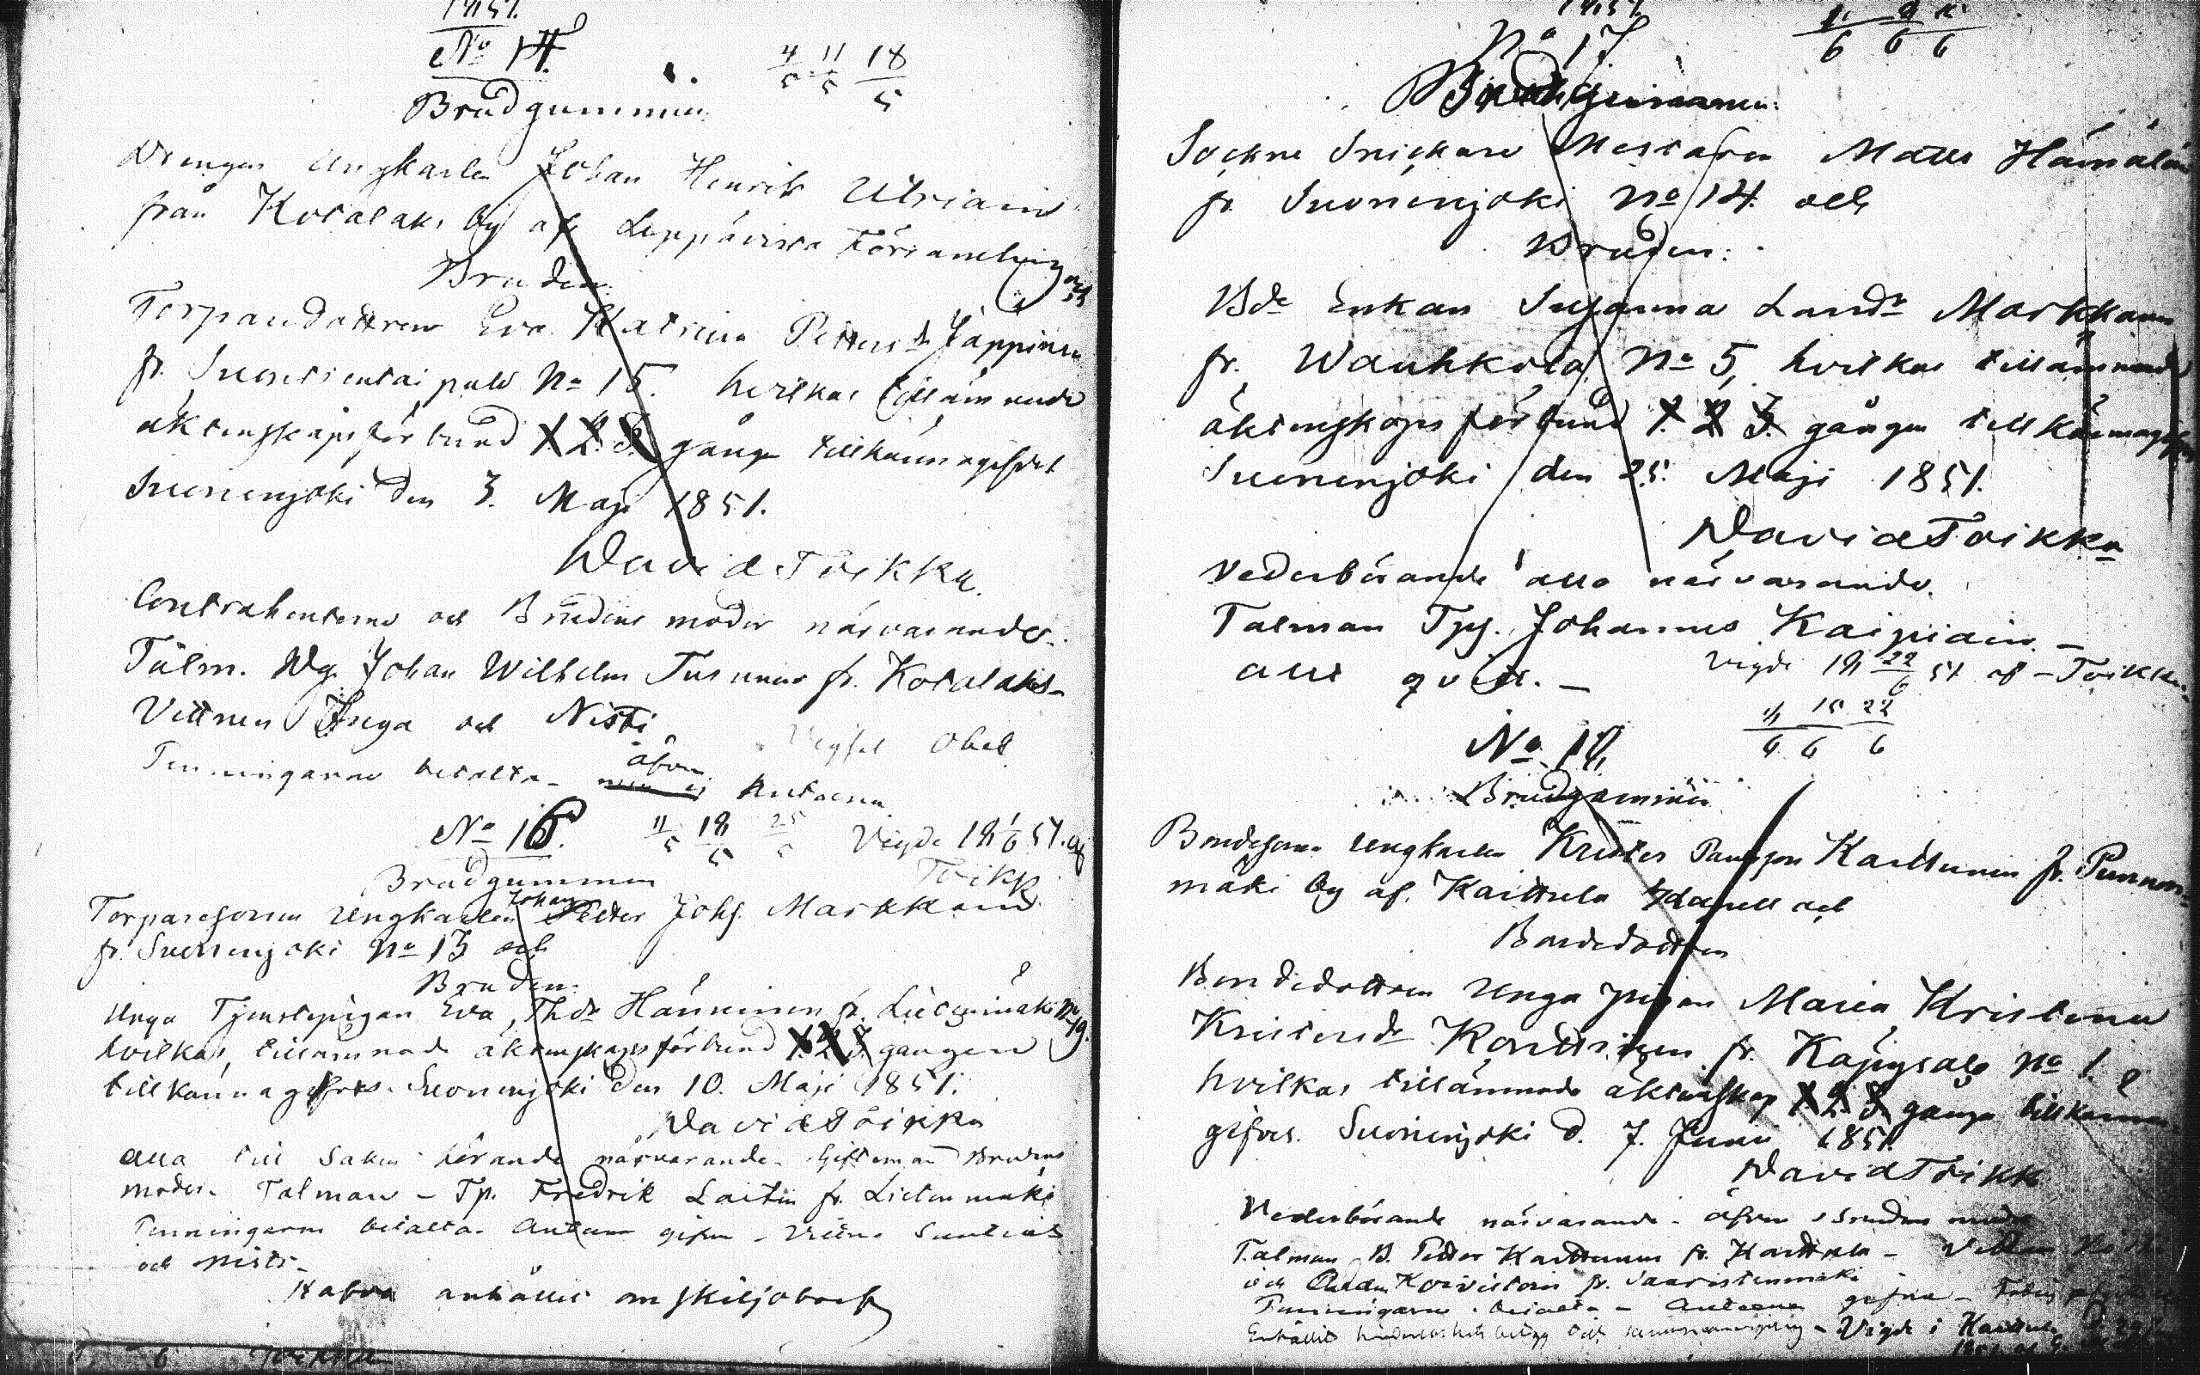 1851.
No 14.
4/5 11/5 18/5
Brudgummen
Drengen Ungkarlen Johan Henrik Utriain
från Kotalaks by af Leppävirta Församling och
Bruden:
Torpardottren Eva Katrina Pettersdr Jäppinen
fr. Suontientaipale No 15. hvilkas tillämnade
äktenskapsförbund 1. 2. 3. gången tillkännagifvet
Suonenjoki den 3. Maji 1851.
David Toikka.
Contrahenterne och Brudens moder närvarande.
Talm. Dg. Johan Wilhelm Tusunen fr. Kotalaks
Vittnen Inga och Nisti
Penningarne betalta äfven
No 16.
11/5 18/5 25/5 Vigde 18 1/6 51. af
Toikk
Brudgummen
Johan
Torparesonen Ungkarlen Petter Johs. Markkain
fr. Suonenjoki No 13 och
Bruden:
Unga Tjenstepigan Eva Thdr Hänninen fr. Lietemäki No 19.
hvilkas tillämnade äktenskapsförbund 1. 2. 3. gången
tillkännagifves. Suonenjoki den 10. Maji 1851.
David Toikka
Alla till saken hörande närvarande. Giftoman Brudens
moder. Talman - Tp. Fredrik Laitin fr. Lietemäki
Penningarne betalta.
och Nisti -
Hafva anhållit om skiljobref
1851.
No 17.
1/6 8/6 15/6
Brudgummen:
Sockne Snickare Mästaren Matts Hämäläin
fr. Suonenjoki No 14. och
Bruden:
Bde Enkan Susanna Larsdr Markkanen
fr. Wauhkola No 5, hvilkas tillämnade
äktenskapsförbund 1. 2. 3. gången tillkännagifves
Suonenjoki den 25. Maji 1851.
David Toikka
Vederbörande alla närvarande.
Talman Tpg. Johannes Kaipiain. -
allt qvitt. -
Vigde 18 22/6 51 af - Toikka
No 18.
8/6 15/6 22/6
Brudgummen
Bondesonen Ungkarlen Krister Paulsson Karttunen fr. Punnon-
mäki by af Kaittula Kapell och
Bondedottren
Bondedottren Unga pigan Maria Kristina
Kristersdr Konttinen fr. Käpysalo No 1.
hvilkas tillämnade äktenskap 1. 2. 3. gången tillkänna-
gifves. Suonenjoki d. 7. Junii 1851.
David Toikk
Vederbörande närvarande - äfven Brudens moder
Talman B. Petter Karttunen fr. Karttula -
och Koivistoin fr. Saaristenmäki
Penningarne betalta -
Vigde i Karttula